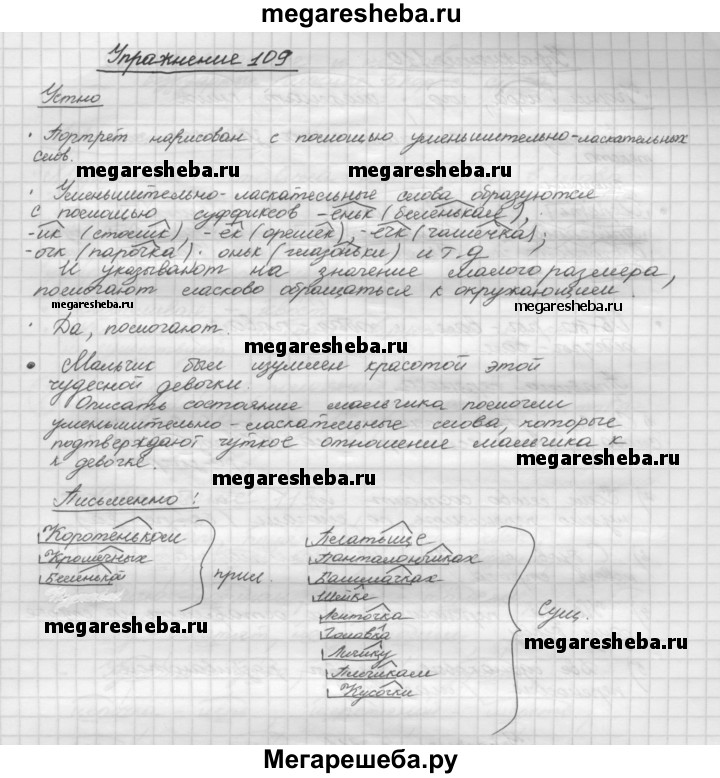 megaresheba.ru
Упражнение 109
Устно
· Портрет нарисован с помощью уменьшительно-ласкательных
слов.
megaresheba.ru megaresheba.ru
· Уменьшительно-ласкательные слова образуются
с помощью суффиксов -еньк (беленькая),
-ик (столик), -ек (орешек), -ечк (чашечка),
-очк (парочка). оньк (глазоньки) и т.д
И указывают на значение малого размера,
помогают ласково обращаться к окружающим.
megaresheba.ru megaresheba.ru
· Да, помогают.
megaresheba.ru
· Мальчик был изумлен красотой этой
чудесной девочки.
Описать состояние мальчика помогли
уменьшительно-ласкательные слова, которые
подтверждают чуткое отношение мальчика к
к девочке.
megaresheba.ru
megaresheba.ru
Письменно:
Коротеньком
Крошечных
Беленькой
прил.
megaresheba.ru
Платьице
Панталончиках
Башмачках
Шейке
Ленточка
Головка
Личику
Плечикам
Кусочки
Сущ.
megaresheba.ru
Мегарешеба.ру